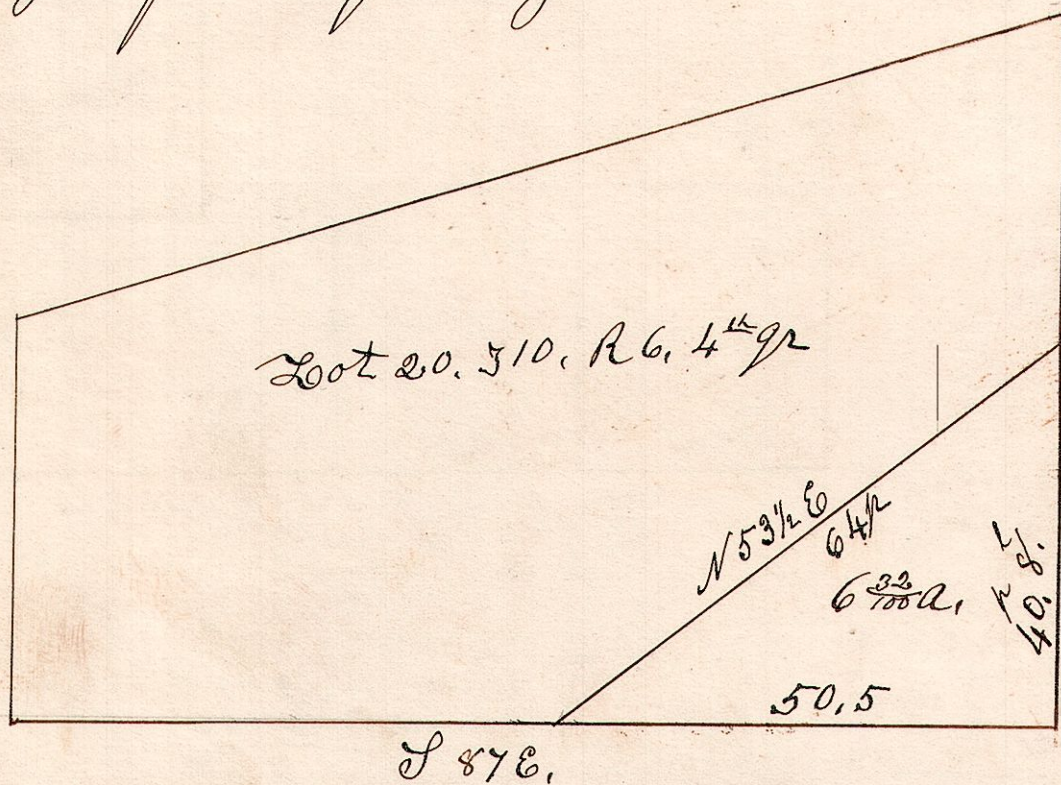 Lot 20. T10. R 6. 4th qr
N 53½ E
64p
6 32/100 a.
40.8.
50.5
S 87 E.